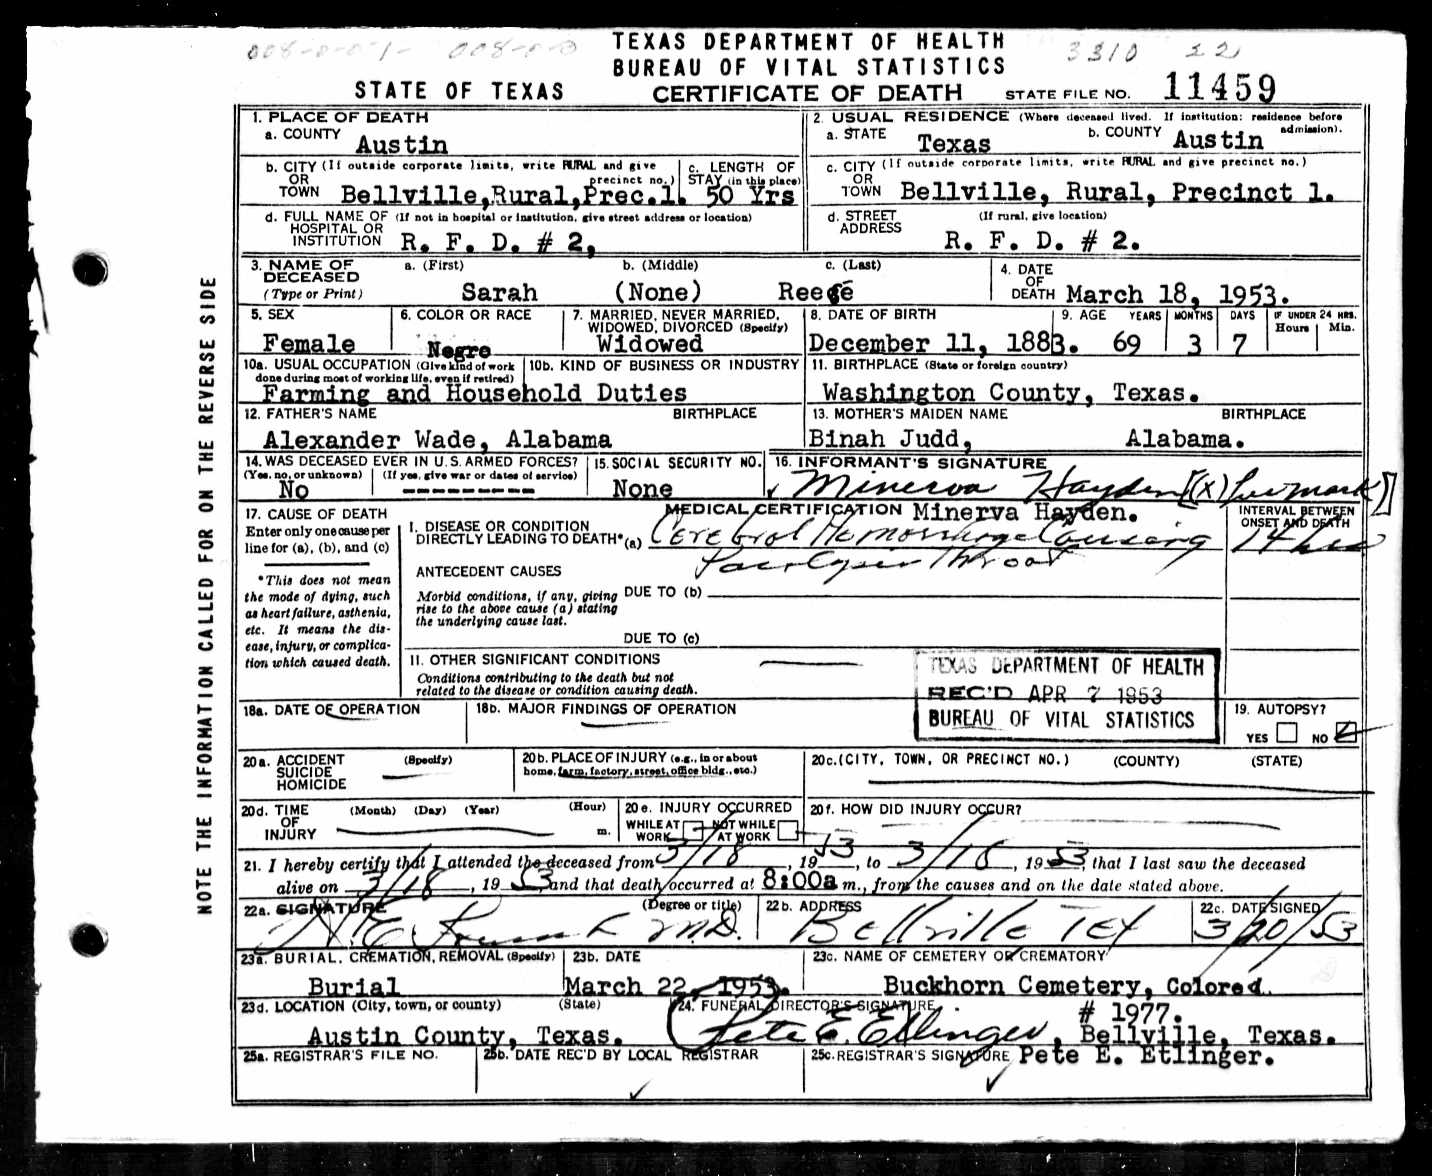 008-0-0-1- 008-0-0 3310 22
TEXAS DEPARTMENT OF HEALTH
BUREAU OF VITAL STATISTICS
STATE OF TEXAS CERTIFICATE OF DEATH STATE FILE NO. 11459
NOTE THE INFORMATION CALLED FOR ON THE REVERSE SIDE
1. PLACE OF DEATH
a. COUNTY Austin
2. USUAL RESIDENCE (Where deceased lived. If institution: residence before admission).
a. STATE Texas b. COUNTY Austin
b. CITY (If outside corporate limits, write RURAL and give precinct no.) OR TOWN Bellville, Rural, Prec. 1.
c. LENGTH OF STAY (in this place) 50 Yrs
c. CITY (If outside corporate limits, write RURAL and give precinct no.) OR TOWN Bellville, Rural, Precinct 1.
d. FULL NAME OF (If not in hospital or institution, give street address or location) HOSPITAL OR INSTITUTION R. F. D. # 2,
d. STREET ADDRESS (If rural, give location) R. F. D. # 2.
3. NAME OF DECEASED (Type or Print) a. (First) Sarah b. (Middle) (None) c. (Last) Reese
4. DATE OF DEATH March 18, 1953.
5. SEX Female
6. COLOR OR RACE Negro
7. MARRIED, NEVER MARRIED, WIDOWED, DIVORCED (Specify) Widowed
8. DATE OF BIRTH December 11, 1883.
9. AGE YEARS 69 MONTHS 3 DAYS 7 IF UNDER 24 HRS. Hours Min.
10a. USUAL OCCUPATION (Give kind of work done during most of working life, even if retired) Farming and Household Duties
10b. KIND OF BUSINESS OR INDUSTRY
11. BIRTHPLACE (State or foreign country) Washington County, Texas.
12. FATHER'S NAME BIRTHPLACE Alexander Wade, Alabama
13. MOTHER'S MAIDEN NAME BIRTHPLACE Binah Judd, Alabama.
14. WAS DECEASED EVER IN U.S. ARMED FORCES? (Yes, no, or unknown) No (If yes, give war or dates of service) --------
15. SOCIAL SECURITY NO. None
16. INFORMANT'S SIGNATURE Minerva Hayden [(X) her mark]
Minerva Hayden.
17. CAUSE OF DEATH
Enter only one cause per line for (a), (b), and (c)
*This does not mean the mode of dying, such as heart failure, asthenia, etc. It means the disease, injury, or complication which caused death.
MEDICAL CERTIFICATION
I. DISEASE OR CONDITION DIRECTLY LEADING TO DEATH* (a) Cerebral Hemorrhage Causing
Throat
INTERVAL BETWEEN ONSET AND DEATH 14 hrs
ANTECEDENT CAUSES
Morbid conditions, if any, giving rise to the above cause (a) stating the underlying cause last.
DUE TO (b)
DUE TO (c)
II. OTHER SIGNIFICANT CONDITIONS
Conditions contributing to the death but not related to the disease or condition causing death.
TEXAS DEPARTMENT OF HEALTH
REC'D APR 7 1953
BUREAU OF VITAL STATISTICS
18a. DATE OF OPERATION
18b. MAJOR FINDINGS OF OPERATION
19. AUTOPSY? YES NO
20a. ACCIDENT SUICIDE HOMICIDE (Specify)
20b. PLACE OF INJURY (e.g., in or about home, farm, factory, street, office bldg., etc.)
20c. (CITY, TOWN, OR PRECINCT NO.) (COUNTY) (STATE)
20d. TIME OF INJURY (Month) (Day) (Year) (Hour) m.
20e. INJURY OCCURRED WHILE AT WORK NOT WHILE AT WORK
20f. HOW DID INJURY OCCUR?
21. I hereby certify that I attended the deceased from 3/18, 1953, to 3/18, 1953, that I last saw the deceased
alive on 3/18, 1953 and that death occurred at 8:00a m., from the causes and on the date stated above.
22a. SIGNATURE (Degree or title) M.D.
22b. ADDRESS Bellville Tex
22c. DATE SIGNED 3/20/53
23a. BURIAL, CREMATION, REMOVAL (Specify) Burial
23b. DATE March 22, 1953.
23c. NAME OF CEMETERY OR CREMATORY Buckhorn Cemetery, Colored.
23d. LOCATION (City, town, or county) (State) Austin County, Texas.
24. FUNERAL DIRECTOR'S SIGNATURE # 1977.
Pete E. Etlinger, Bellville, Texas.
25a. REGISTRAR'S FILE NO.
25b. DATE REC'D BY LOCAL REGISTRAR
25c. REGISTRAR'S SIGNATURE Pete E. Etlinger.